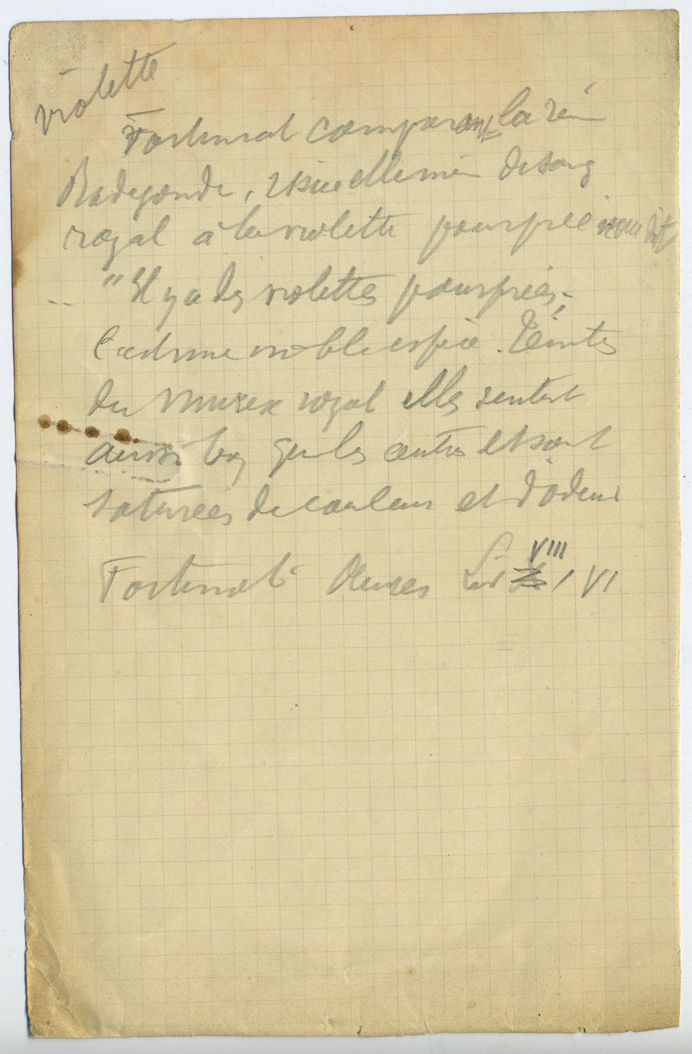 violette
Fortunat comparant la reine
Radegonde, issue elle même de sang
royal à la violette pourprée nous dit
"Il y a des violettes pourprées,
c'est une noble espèce. Teintes
du murex royal elles sentent
aussi bon que les autres et sont
saturées de couleurs et d'odeur
Fortunat Œuvres Liv VIII, VI